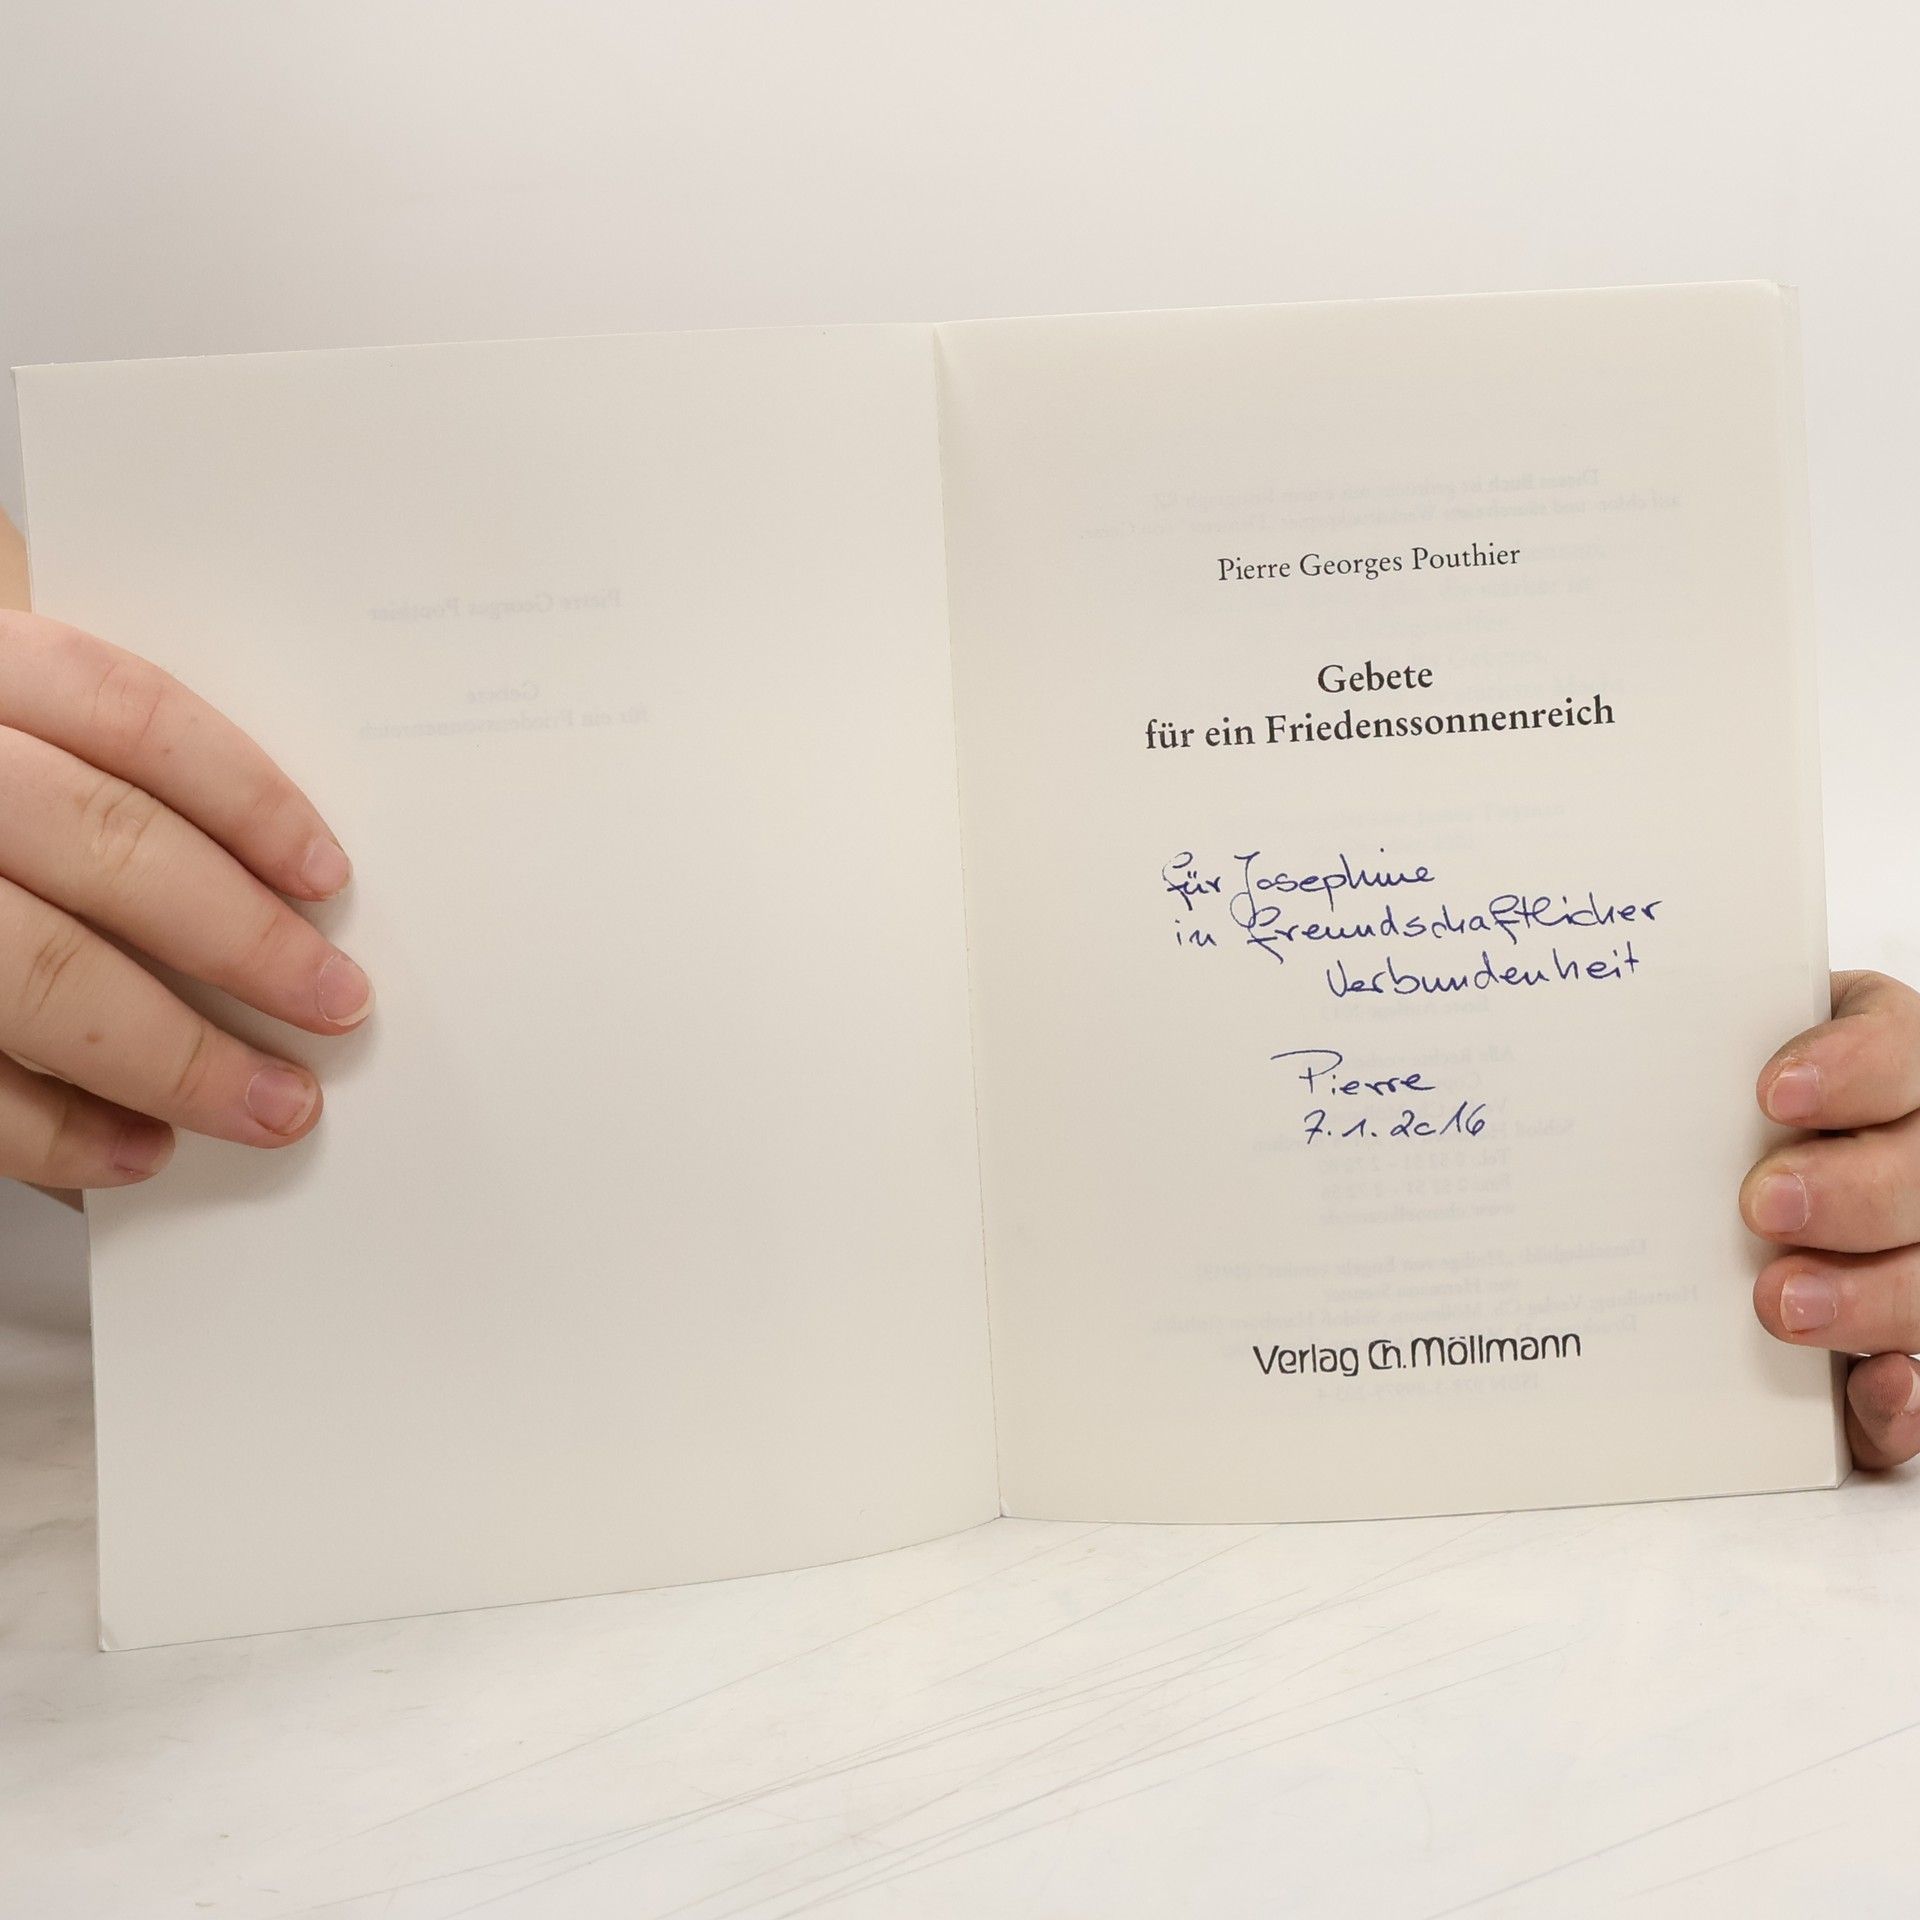 Pierre Georges Pouthier
Gebete
für ein Friedenssonnenreich
für Josephine
in freundschaftlicher
Verbundenheit
Pierre
7.1.2016
Verlag Ch. Möllmann